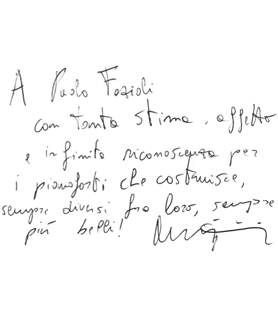 A Paolo Fazioli
con tanta stima, affetto
e infinita riconoscenza per
i pianoforti che costruisce,
sempre diversi fra loro, sempre
più belli!